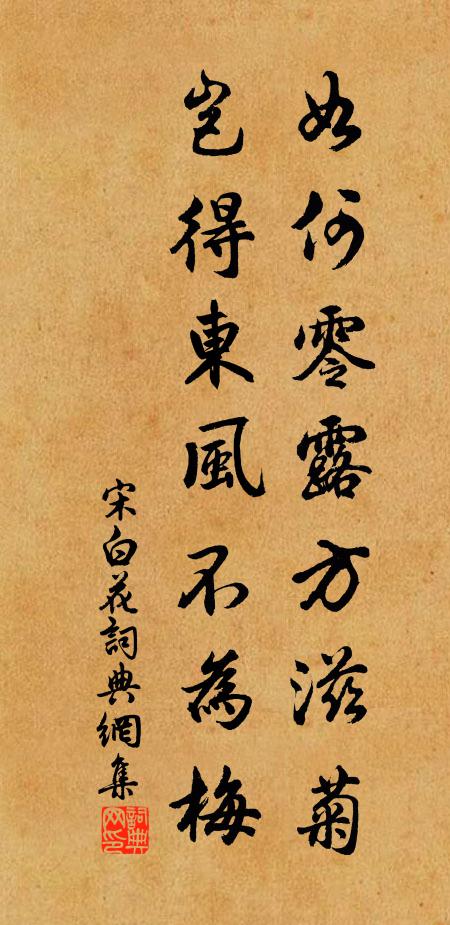 如何零露方滋菊
豈得東風不為梅
宋白花詞典網集
詞典网印